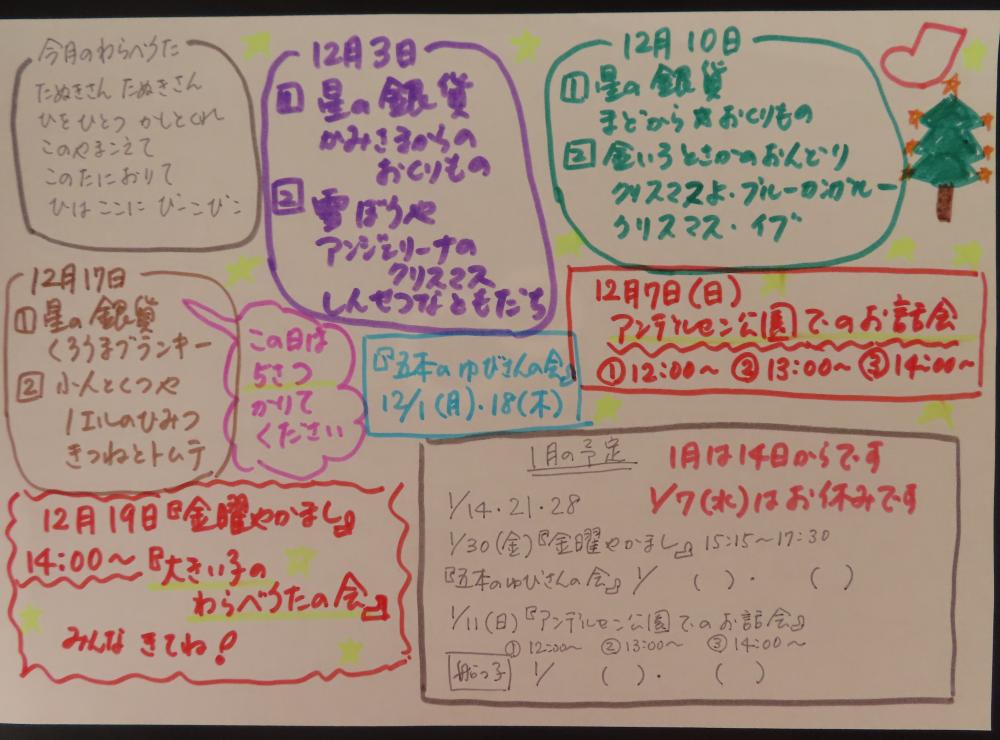 今月のわらべうた
たぬきさん たぬきさん
ひをひとつ かしとくれ
このやまこえて
このたにおりて
ひは ここに ぴーこぴこ
12月3日
1 星の銀貨
かみさまからの
おくりもの
2 雪ぼうや
アンジェリーナの
クリスマス
しんせつなともだち
12月10日
① 星の銀貨
まどから☆おくりもの
2 金いろとさかのおんどり
クリスマスよ・ブルーカンガルー
クリスマス・イブ
12月7日(日)
アンデルセン公園でのお話会
①12:00~ ②13:00~ ③14:00~
12月17日
1 星の銀貨
くろうまブランキー
2 小人とくつや
ノエルのひみつ
きつねとトムテ
この日は
5さつ
かりて
ください
『五本のゆびさんの会』
12/1(月)・18(木)
12月19日『金曜やかまし』
14:00~『大きい子の
わらべうたの会』
みんな きてね!
1月の予定
1月は14日からです
1/7(水)はお休みです
1/14・21・28
1/30(金)『金曜やかまし』 15:15~17:30
『五本のゆびさんの会』 1/ ( )・ ( )
1/11(日)『アンデルセン公園でのお話会』
①12:00~ ②13:00~ ③14:00~
船っ子 1/ ( )・ ( )